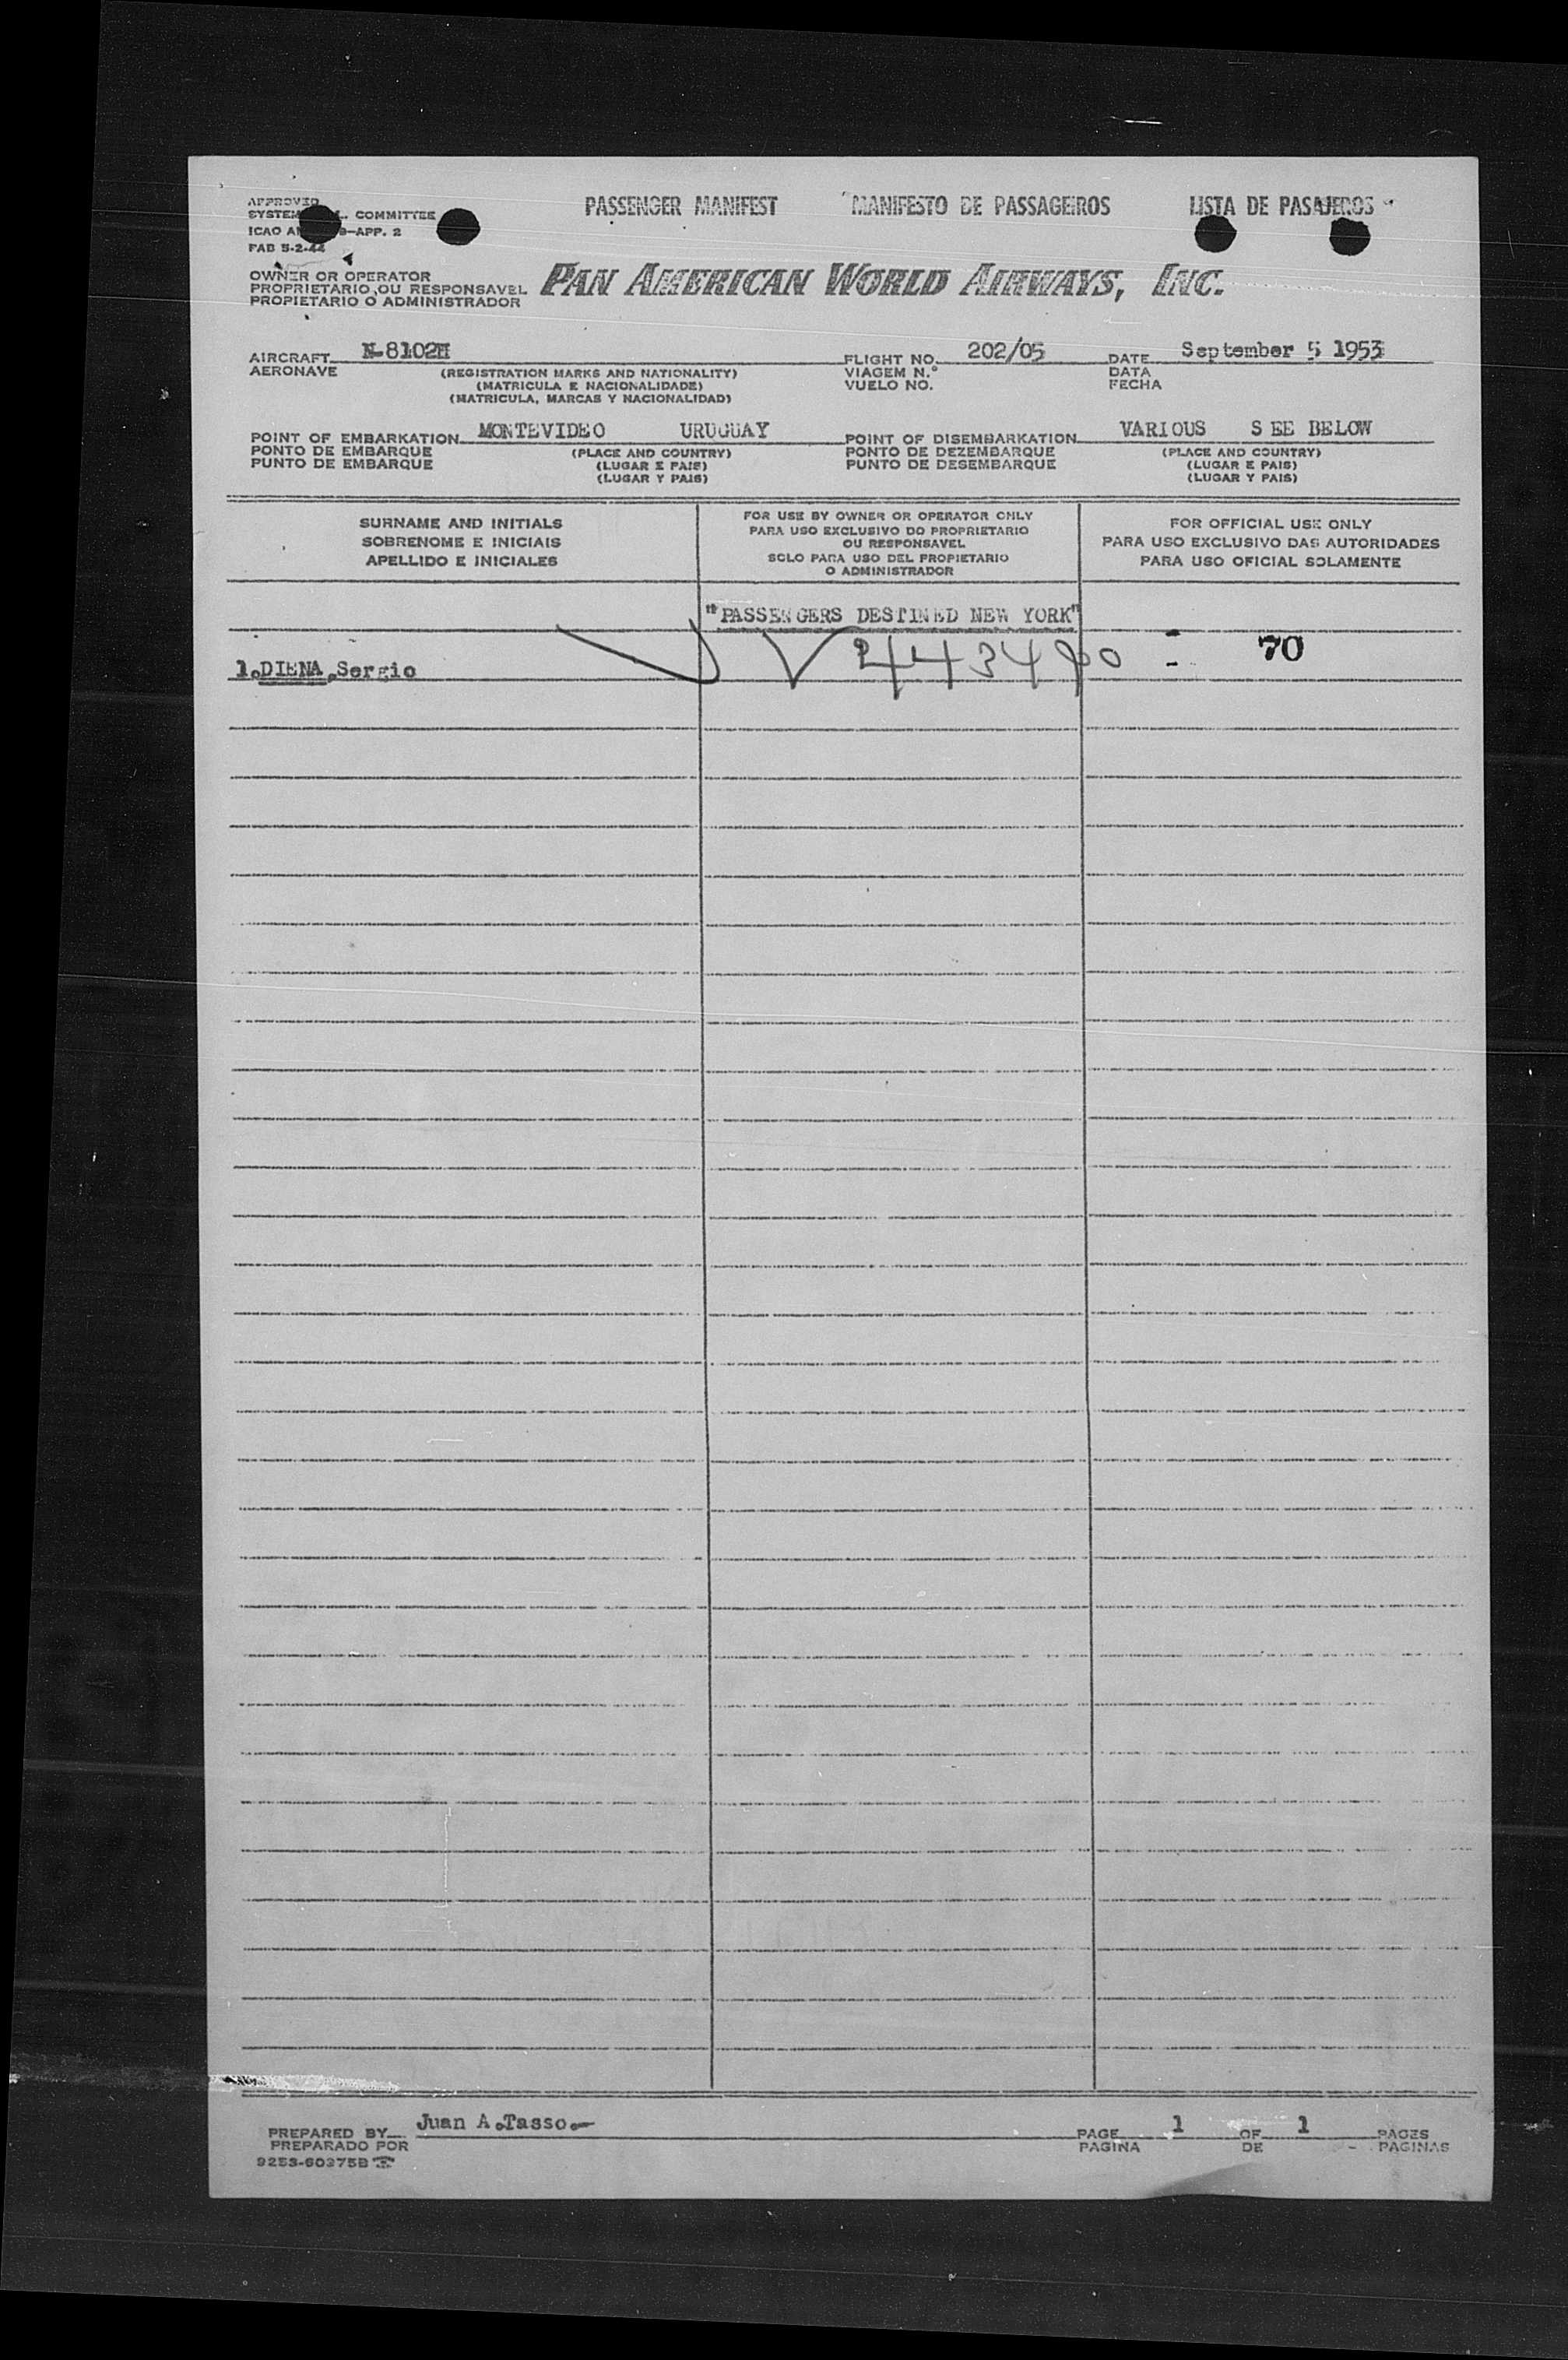 APPROVED
PASSENGER MANIFEST MANIFESTO DE PASSAGEIROS LISTA DE PASAJEROS
COMMITTEE
ICAO -APP. 2
FAB 5-2-44
OWNER OR OPERATOR
PROPRIETARIO OU RESPONSAVEL
PROPIETARIO O ADMINISTRADOR
PAN AMERICAN WORLD AIRWAYS, INC.
AIRCRAFT N-8102H FLIGHT NO. 202/05 DATE September 5 1953
AERONAVE (REGISTRATION MARKS AND NATIONALITY) VIAGEM N.º DATA
(MATRICULA E NACIONALIDADE) VUELO NO. FECHA
(MATRICULA, MARCAS Y NACIONALIDAD)
POINT OF EMBARKATION MONTEVIDEO URUGUAY POINT OF DISEMBARKATION VARIOUS SEE BELOW
PONTO DE EMBARQUE (PLACE AND COUNTRY) PONTO DE DEZEMBARQUE (PLACE AND COUNTRY)
PUNTO DE EMBARQUE (LUGAR E PAIS) PUNTO DE DESEMBARQUE (LUGAR E PAIS)
(LUGAR Y PAIS) (LUGAR Y PAIS)
SURNAME AND INITIALS
SOBRENOME E INICIAIS
APELLIDO E INICIALES
FOR USE BY OWNER OR OPERATOR ONLY
PARA USO EXCLUSIVO DO PROPRIETARIO
OU RESPONSAVEL
SOLO PARA USO DEL PROPIETARIO
O ADMINISTRADOR
FOR OFFICIAL USE ONLY
PARA USO EXCLUSIVO DAS AUTORIDADES
PARA USO OFICIAL SOLAMENTE
"PASSENGERS DESTINED NEW YORK"
1.DIENA,Sergio 70
PREPARED BY Juan A.Tasso.- PAGE 1 OF 1 PAGES
PREPARADO POR PAGINA DE PAGINAS
9253-60375B